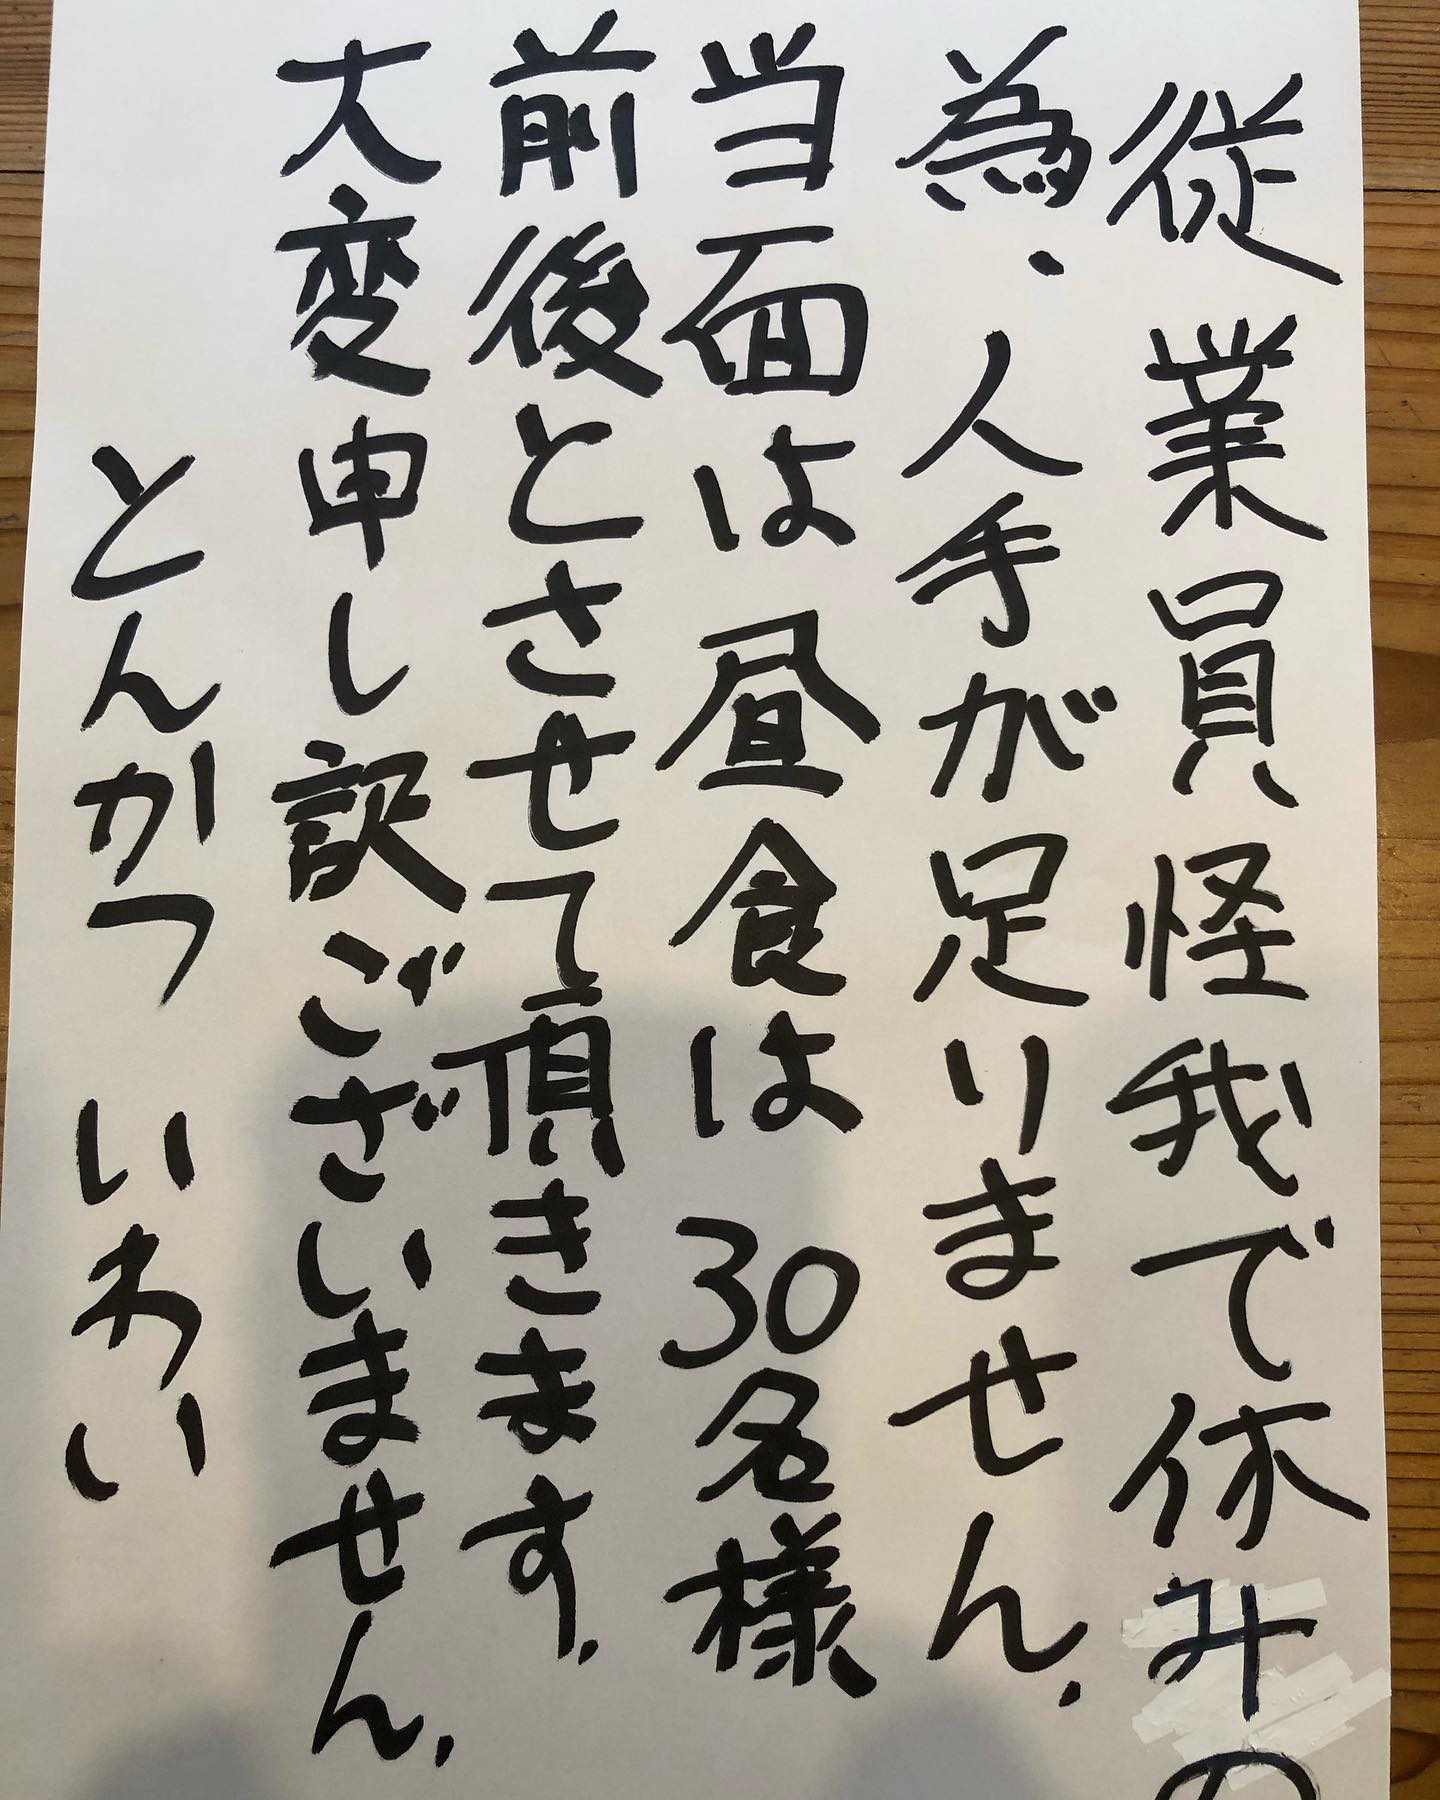 従業員怪我で休みの
為、人手が足りません。
当面は昼食は30名様
前後とさせて頂きます。
大変申し訳ございません。
とんかつ いわい